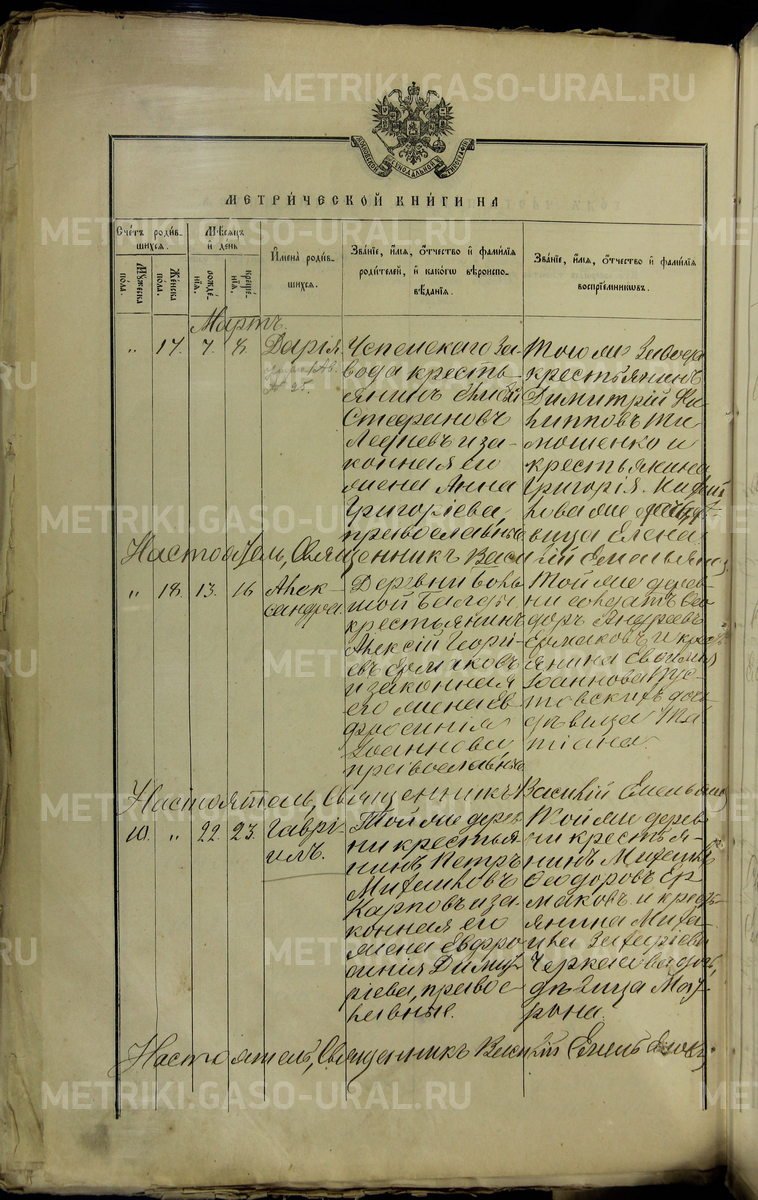 METRIKI.GASO-URAL.RU
МЕТРИ́ЧЕСКОЙ КНИ́ГИ НА
Сче́тъ роди́в-
шихся.
Мѣ́сяцъ
и҆ де́нь
И҆мена̀ роди́в-
шихся.
Зва́нїе, и҆́мя, ѻ҆́тчество и҆ фами́лїя
роди́телей, и҆ како́гѡ вѣроиспо-
вѣ́данїя.
Зва́нїе, и҆́мя, ѻ҆́тчество и҆ фами́лїя
воспрїе́мникѡвъ.
Мꙋ́жеска по́ла.
Же́нска по́ла.
рожде́нїя.
креще́нїя.
Мартъ.
„ 17. 7. 8.
Дарія
Успенскаго За-
вода кресть-
янинъ
Стефановъ
Ледневъ и за-
конная его
жена Анна
Григоріева,
православные
Того же Завода
крестьянинъ
Димитрій Фи-
липповъ Ти-
мошенко и
крестьянина
Григорія
дѣ-
вица Елена
Настоятель, Священникъ Василій Емельяновъ
„ 18. 13. 16
Алек-
сандра
Деревни Боль-
шой Балды
крестьянинъ
Алексій Георгі-
евъ Ермаковъ
и законная
его жена Ев-
фросинія
Іоаннова
православные
Той же дерев-
ни солдатъ Ѳео-
доръ Андреевъ
Ермаковъ и крест-
янина
Іоаннова Пус-
товскихъ доч-
дѣвица Та-
тіана.
Настоятель, Священникъ Василій Емельяновъ
10. „ 22. 23.
Гаврі-
илъ.
Той же дерев-
ни крестья-
нинъ Петръ
Михаиловъ
Карповъ и за-
конная его
жена Евфро-
синія Димит-
ріева, правос-
лавные.
Той же дерев-
ни крестья-
нинъ Михаилъ
Ѳеодоровъ Ер-
маковъ и крест-
янина Миха-
ила Захаріева
Черкасова дочь,
дѣвица Мат-
рона.
Настоятель, Священникъ Василій Емельяновъ